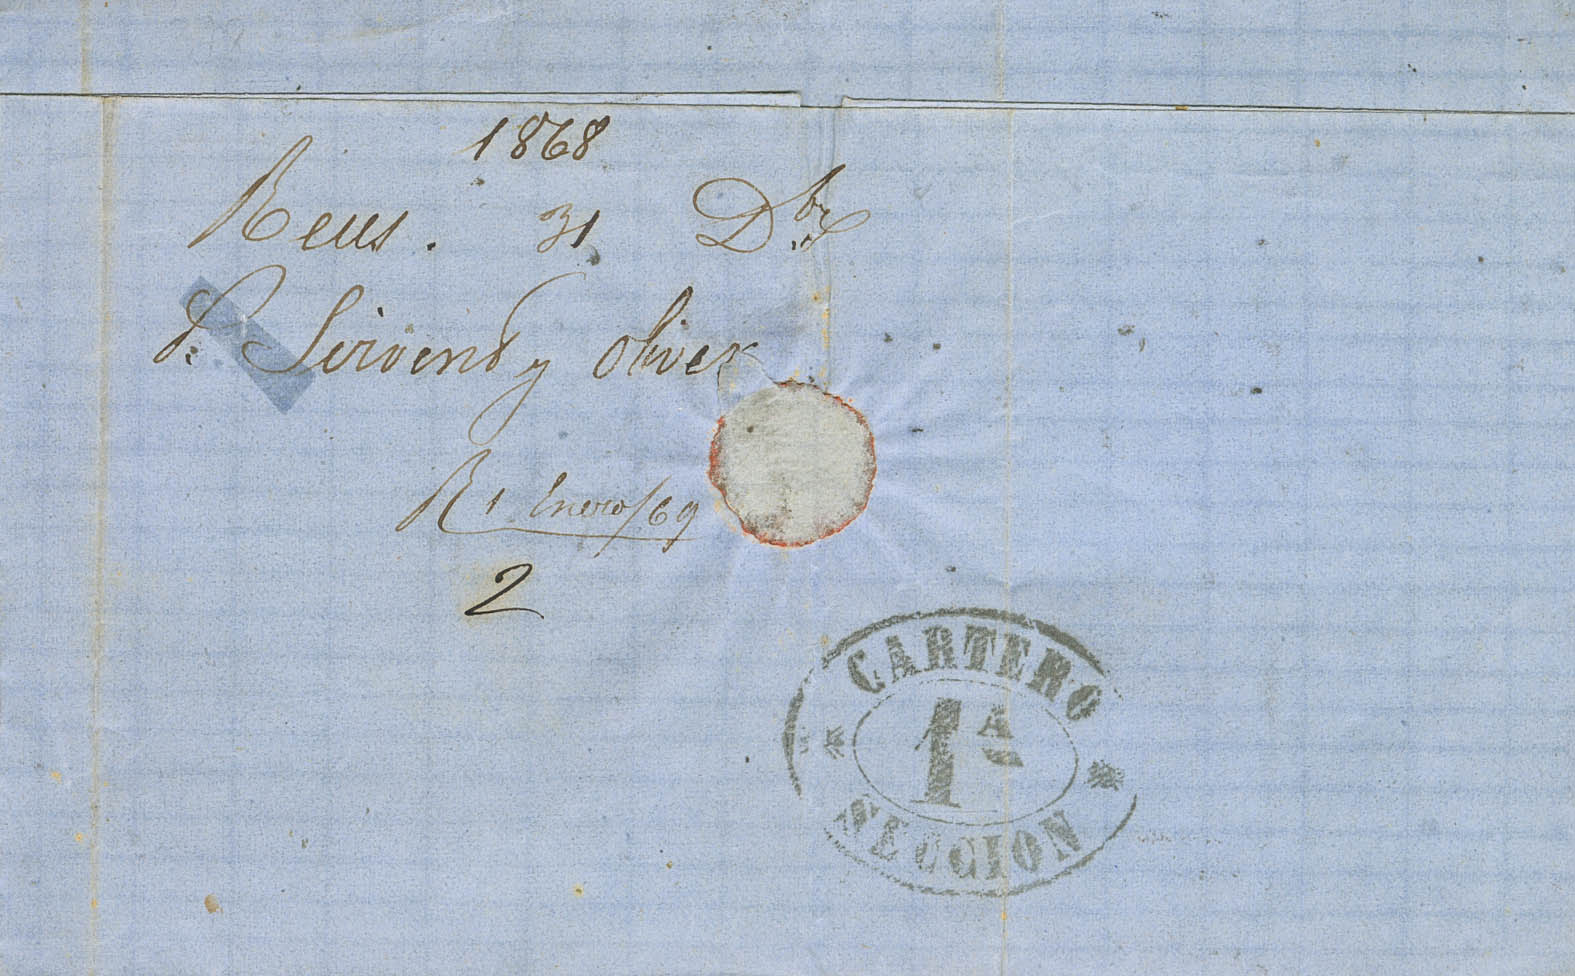 1868
Reus. 31 Dbre
S. Sirvent y Oliver
R 1 Enero/69
2
CARTERO
1A
SECCION